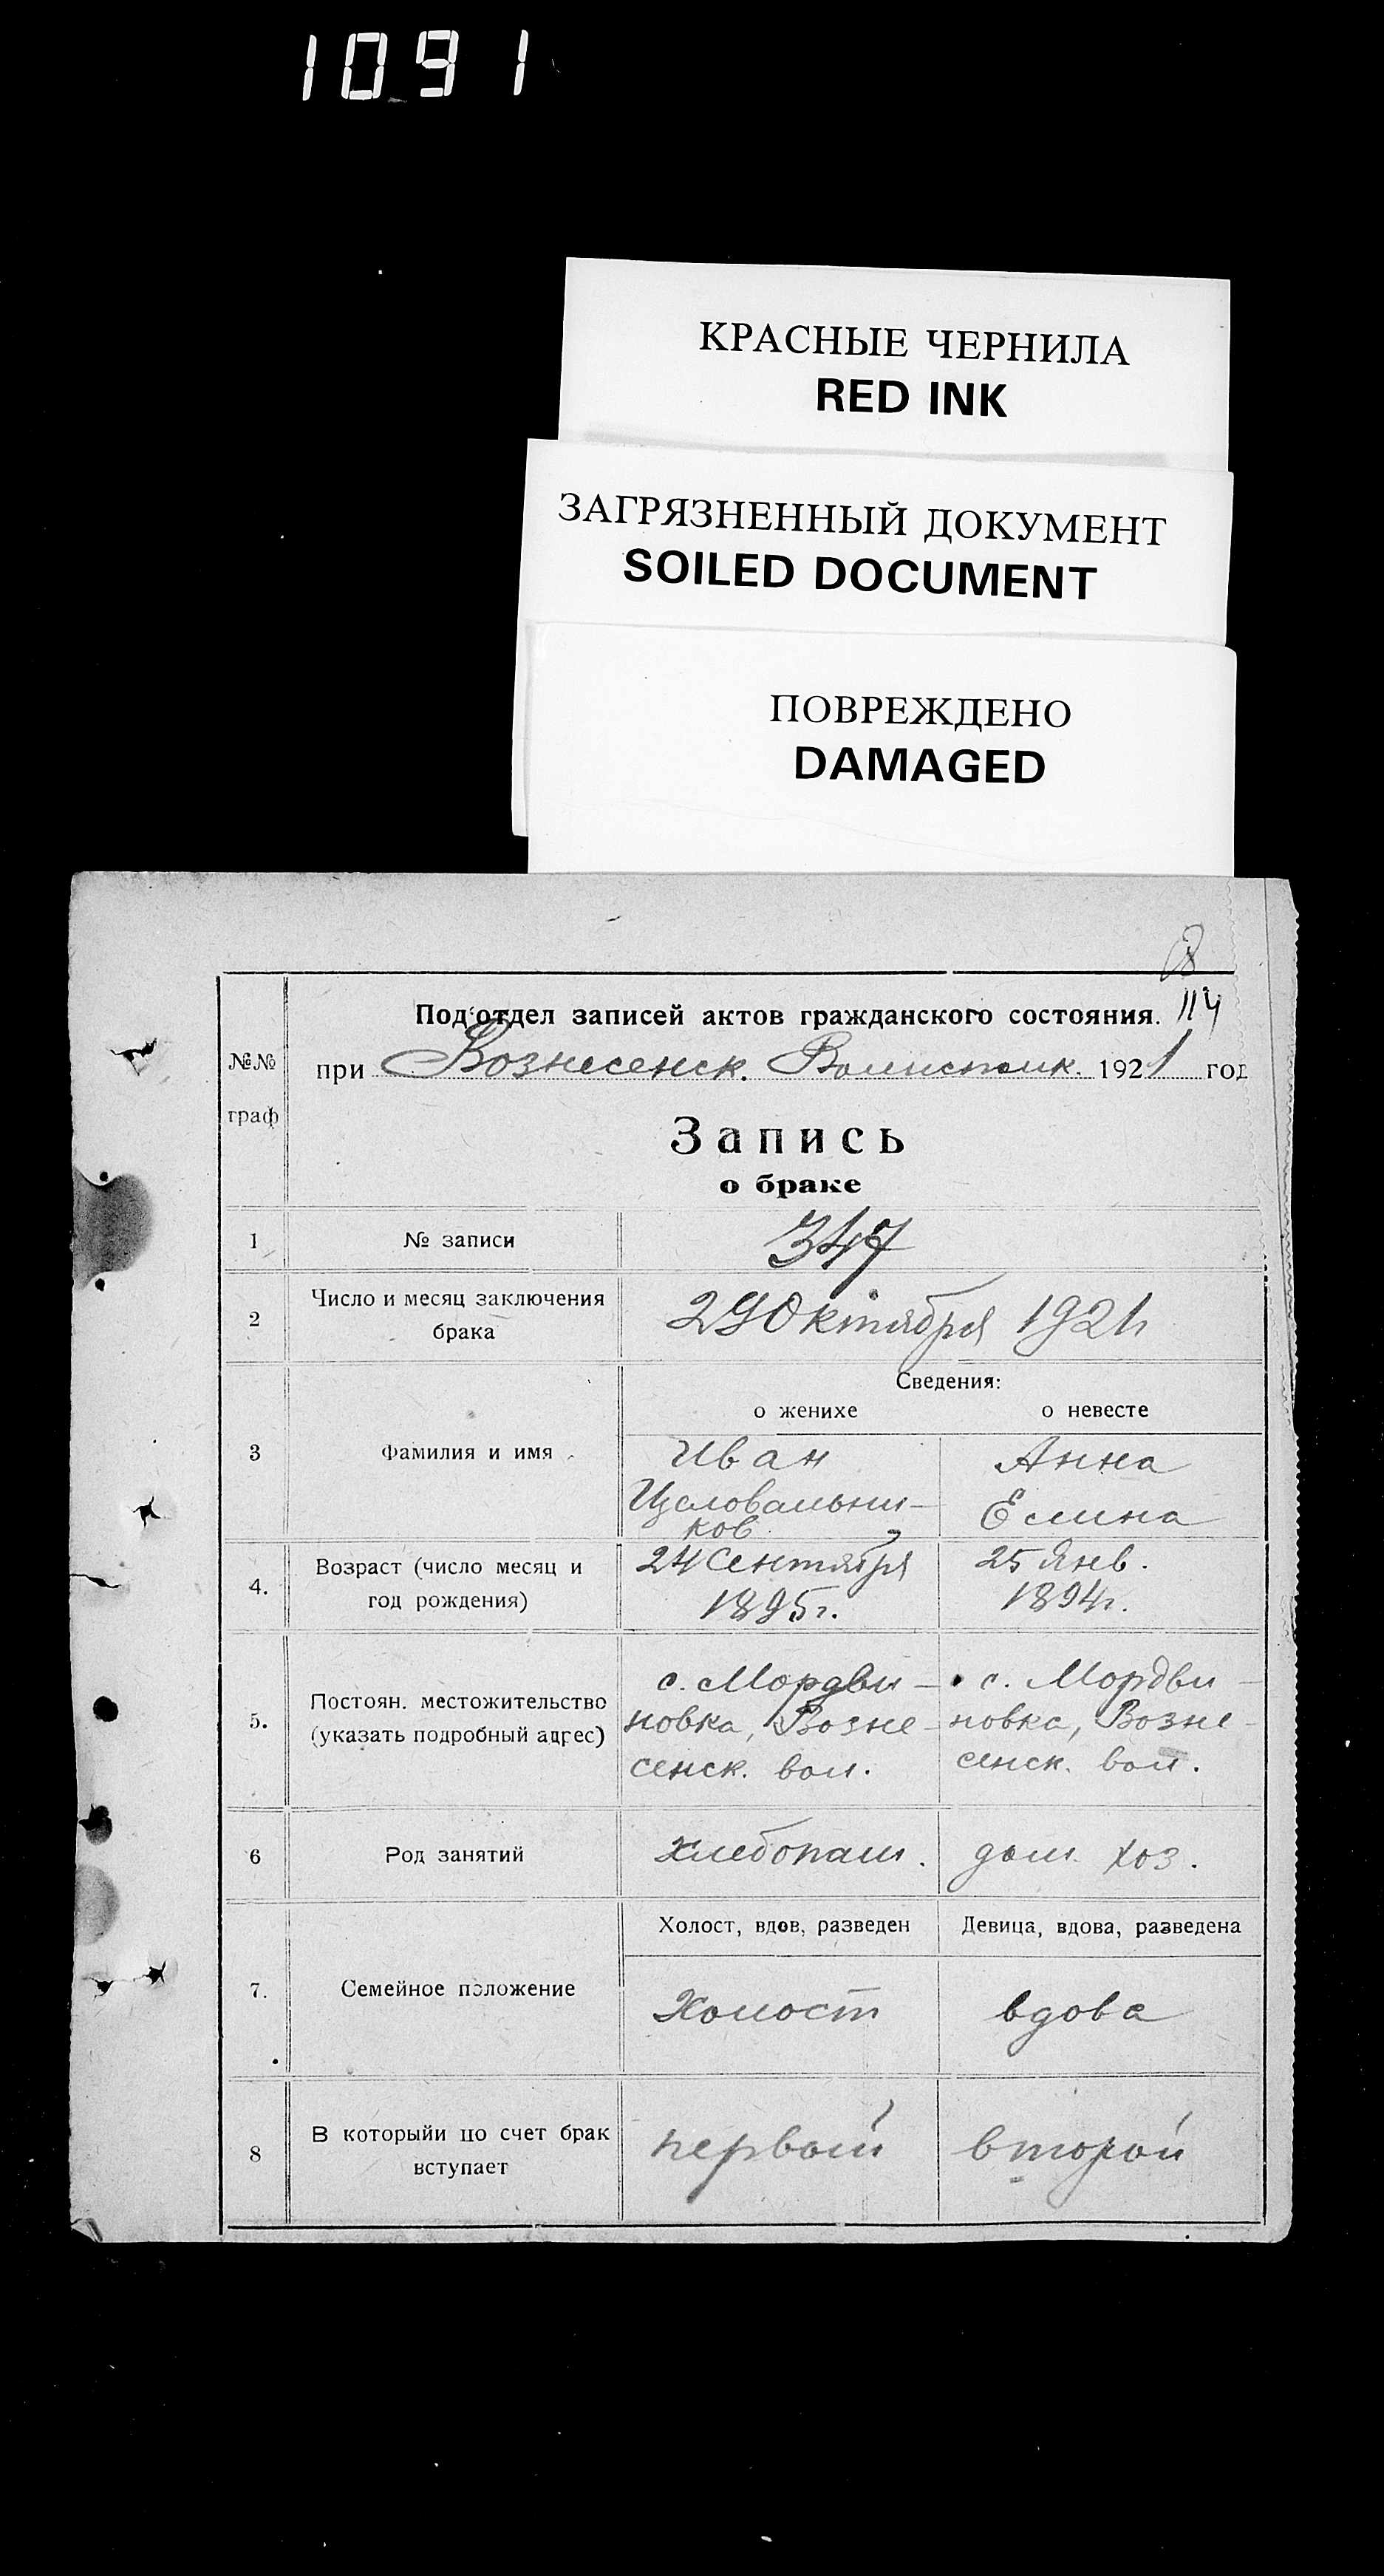 1091
КРАСНЫЕ ЧЕРНИЛА
RED INK
ЗАГРЯЗНЕННЫЙ ДОКУМЕНТ
SOILED DOCUMENT
ПОВРЕЖДЕНО
DAMAGED
114
Подотдел записей актов гражданского состояния.
№№ граф
при Вознесенск. Волисполк. 1921 год
Запись
о браке
1 № записи 347
2 Число и месяц заключения брака 29 Октября 1921г
Сведения:
о женихе о невесте
3 Фамилия и имя
Иван Анна
Целовальни- Елина
ков
4. Возраст (число месяц и год рождения)
24 Сентября 25 Янв.
1895г. 1894г.
5. Постоян. местожительство (указать подробный адрес)
с. Мордви- с. Мордви-
новка, Возне- новка, Возне-
сенск. вол. сенск. вол.
6 Род занятий хлебопаш. дом. хоз.
Холост, вдов, разведен Девица, вдова, разведена
7. Семейное положение Холост вдова
8 В которыйи по счет брак вступает первый второй